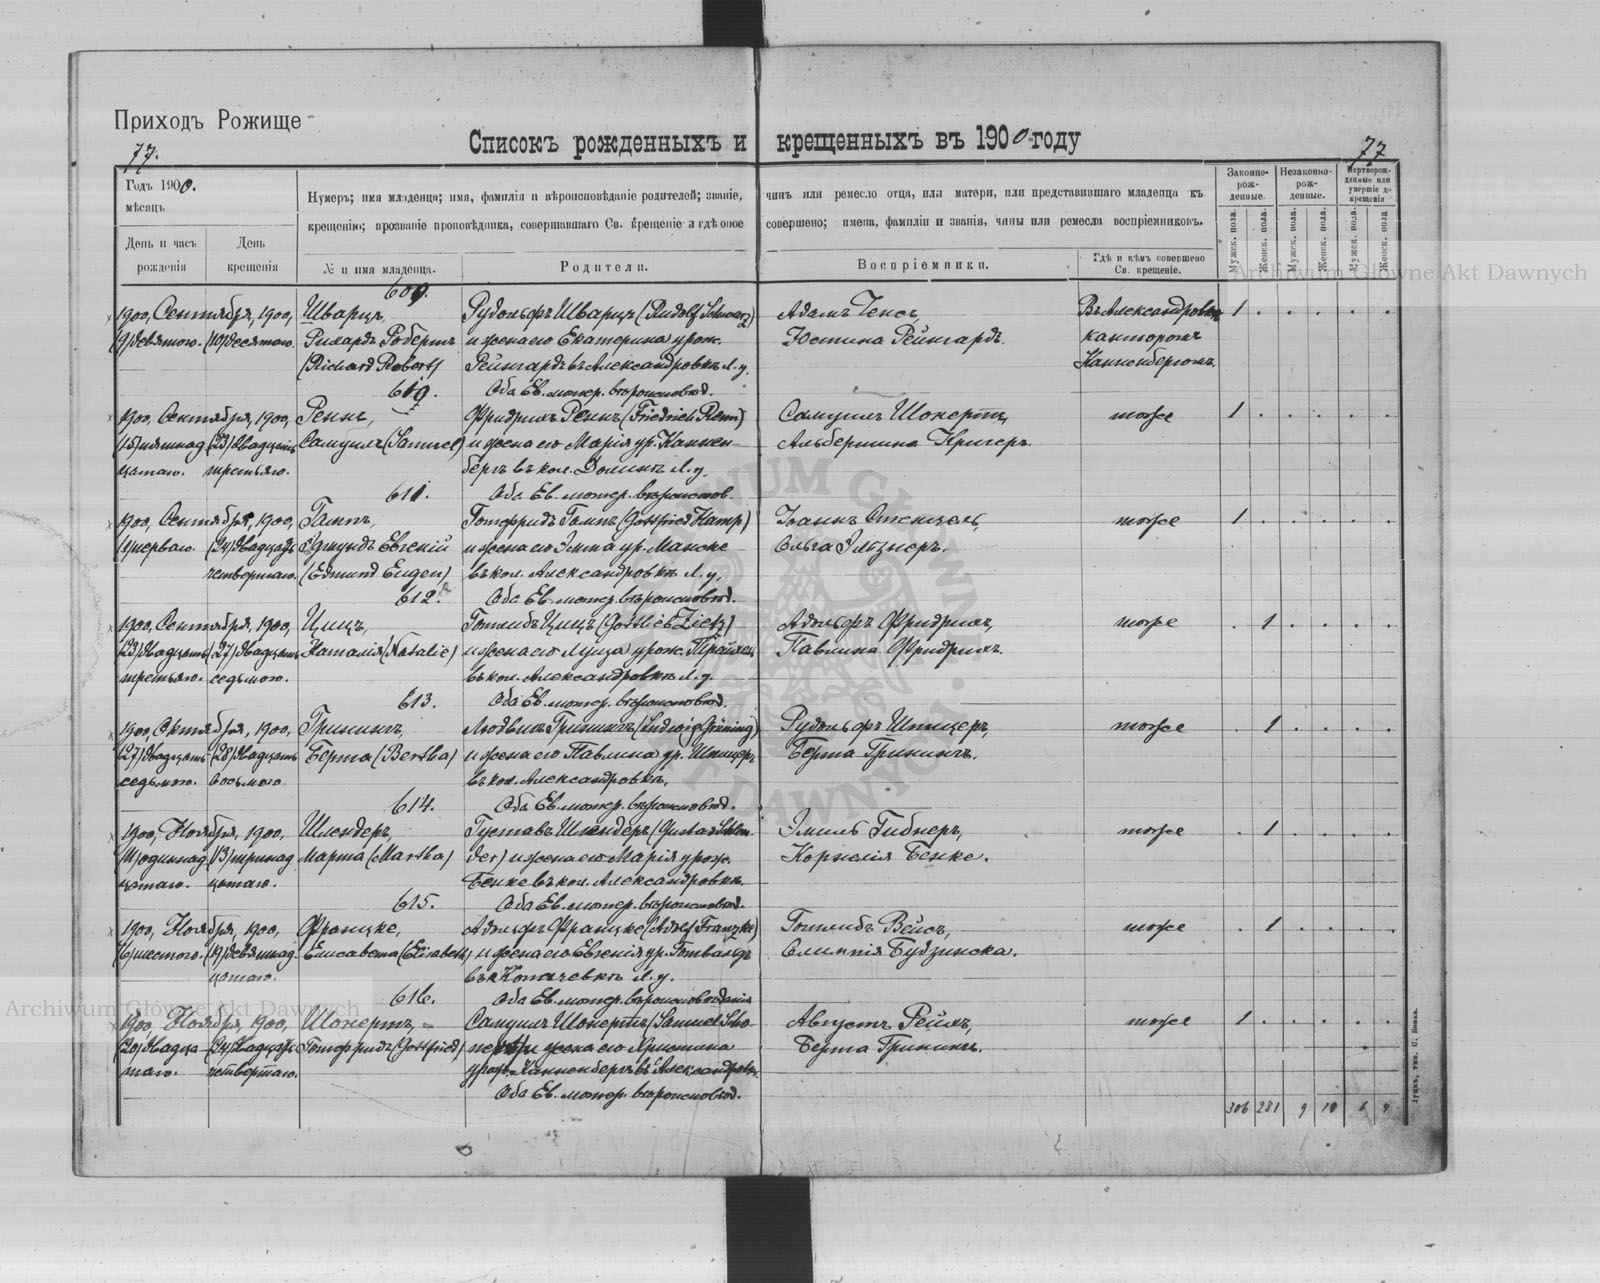 Приходъ Рожище
Списокъ рожденныхъ и крещенныхъ въ 1900 году
77.
77
Годъ 1900.
мѣсяцъ
День и часъ рожденія
День крещенія
Нумеръ; имя младенца; имя, фамилія и вѣроисповѣданіе родителей; званіе, чинъ или ремесло отца, или матери, или представившаго младенца къ
крещенію; прозваніе проповѣдника, совершавшаго Св. Крещеніе и гдѣ оное совершено; имена, фамиліи и званія, чины или ремесла воспріемниковъ.
№ и имя младенца.
Родители.
Воспріемники.
Гдѣ и кѣмъ совершено Св. крещеніе.
Законно-рож-денные.
Незаконно-рож-денные.
Мертворож-денные или умершіе до крещенія
Мужск. пола.
Женск. пола.
Мужск. пола.
Женск. пола.
Мужск. пола.
Женск. пола
609.
1900, Сентября, 1900, Шварцъ, Рудольфъ Шварцъ (Rudolf Schwarz) Адамъ Генсъ, Въ Александровкѣ 1
(9) девятаго. (10) десятаго. Рихардъ Робертъ и жена его Екатерина урож. Юстина Рейнгардъ. канторомъ
(Richard Robert) Рейнгардъ въ Александровкѣ Л. у. Канненбергомъ.
610. Оба Ев. лютер. вѣроисповѣд.
1900, Сентября, 1900, Реннъ, Фридрихъ Реннъ (Friedrich Renn) Самуилъ Шонертъ, тоже 1
(15) пятнад (23) двадцать Самуилъ (Samuel) и жена его Марія ур. Каннен Альбертина Кригеръ.
цатаго. третьяго. бергъ въ кол. Долинкѣ Л. у.
611. Оба Ев. лютер. вѣроисповѣд.
1900, Сентября, 1900, Гампъ, Готфридъ Гампъ (Gottfried Hamp) Іоаннъ Стенцель, тоже 1
(1) перваго. (24) двадцать Эдмундъ Евгеній и жена его Эмма ур. Манске Ольга Элтзнеръ.
четвертаго. (Edmund Eugen) въ кол. Александровкѣ Л. у.
612. Оба Ев. лютер. вѣроисповѣд.
1900, Сентября, 1900, Цицъ, Готлибъ Цицъ (Gottlieb Zietz) Адольфъ Фридрихъ, тоже 1
(23) двадцать (27) двадцать Наталія (Natalie) и жена его Луиза урож. Павлина Фридрихъ.
третьяго. седьмого. въ кол. Александровкѣ Л. у.
613. Оба Ев. лютер. вѣроисповѣд.
1900, Октября, 1900, Грининъ, Людвигъ Грининъ (Ludwig Grüning) Рудольфъ Шпицеръ, тоже 1
(27) двадцать (28) двадцать Берта (Bertha) и жена его Павлина ур. Шпицеръ Берта Грининъ.
седьмого. восьмого въ кол. Александровкѣ.
614. Оба Ев. лютер. вѣроисповѣд.
1900, Ноября, 1900. Шлендеръ, Густавъ Шлендеръ (Gustav Schlen- Эмиль Гибнеръ, тоже 1
(11) одиннад (13) тринад Марта (Martha) der) и жена его Марія урож. Корнелія Бенке.
цатаго. цатаго. Бенке въ кол. Александровкѣ.
615. Оба Ев. лютер. вѣроисповѣд.
1900, Ноября, 1900, Францке, Адольфъ Францке (Adolf Franzke) Готлибъ Вейсъ, тоже 1
(6) шестого. (19) девятнад Елисавета (Elisabeth) и жена его Евгенія ур. Готвальдъ Олимпія Будзинска.
цатаго. въ Копачевкѣ Л. у.
616. Оба Ев. лютер. вѣроисповѣданія
1900, Ноября, 1900, Шонертъ, Самуилъ Шонертъ (Samuel Scho- Августъ Рейхъ, тоже 1
(20) двадца (24) двадцать Готфридъ (Gottfried) nert) и жена его Христина Берта Грининъ.
таго. четвертаго. урож. Канненбергъ въ Александровкѣ
Оба Ев. лютер. вѣроисповѣд.
306 281 9 10
Луцкъ, тип. С. Бонка.
Archiwum Główne Akt Dawnych
Archiwum Główne Akt Dawnych